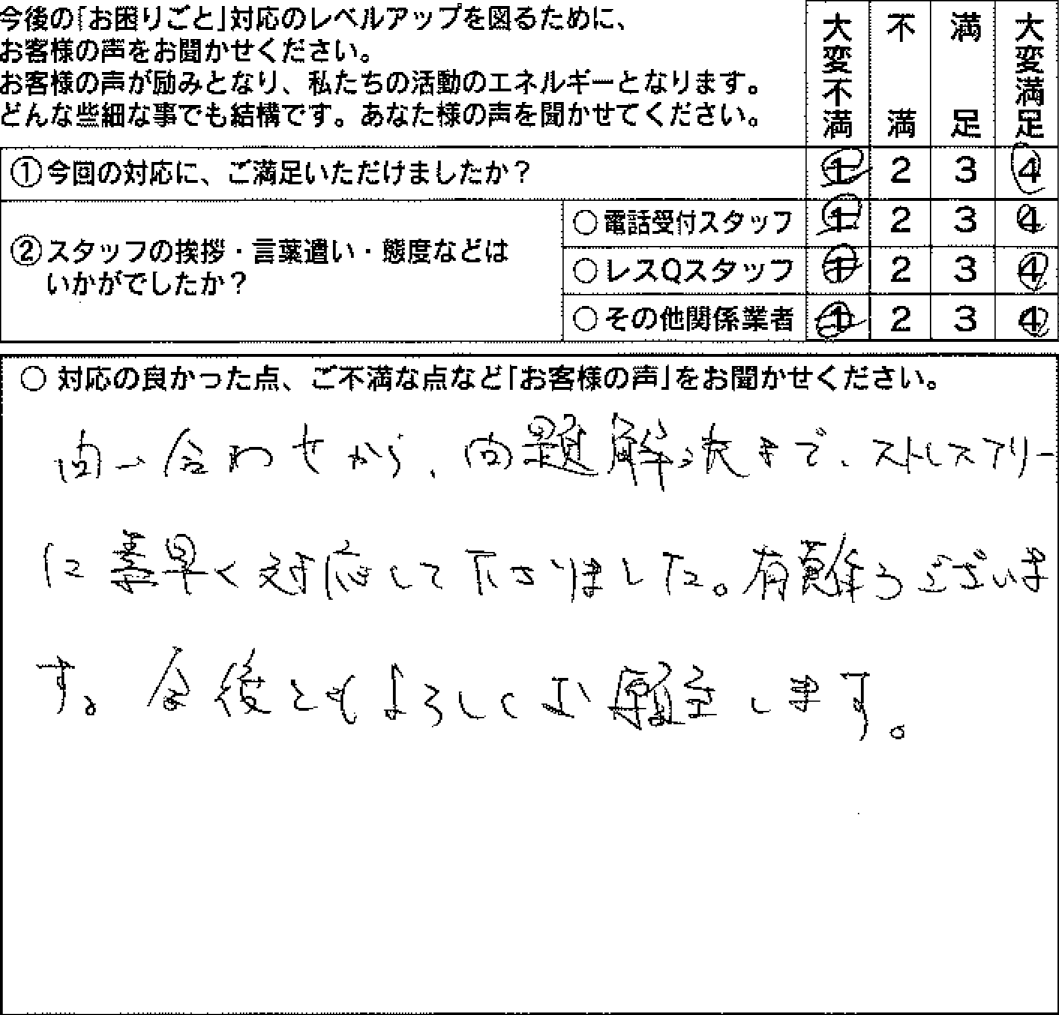 今後の「お困りごと」対応のレベルアップを図るために、
お客様の声をお聞かせください。
お客様の声が励みとなり、私たちの活動のエネルギーとなります。
どんな些細な事でも結構です。あなた様の声を聞かせてください。
大変不満 不満 満足 大変満足
①今回の対応に、ご満足いただけましたか? 1 2 3 4
②スタッフの挨拶・言葉遣い・態度などは
いかがでしたか?
○電話受付スタッフ 1 2 3 4
○レスQスタッフ 1 2 3 4
○その他関係業者 1 2 3 4
○ 対応の良かった点、ご不満な点など「お客様の声」をお聞かせください。
問い合わせから、問題解決まで、ストレスフリー
に素早く対応して下さりました。有難うございま
す。今後ともよろしくお願い致します。